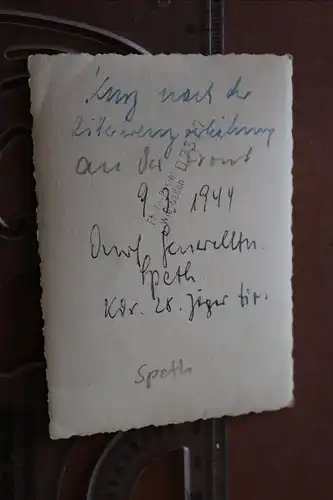 Kurz nach der
Ritterkreuzverleihung
an der Front
9 1944
Durch Generalltn.
Speth
Kdr. 28. Jäger Div.
Speth